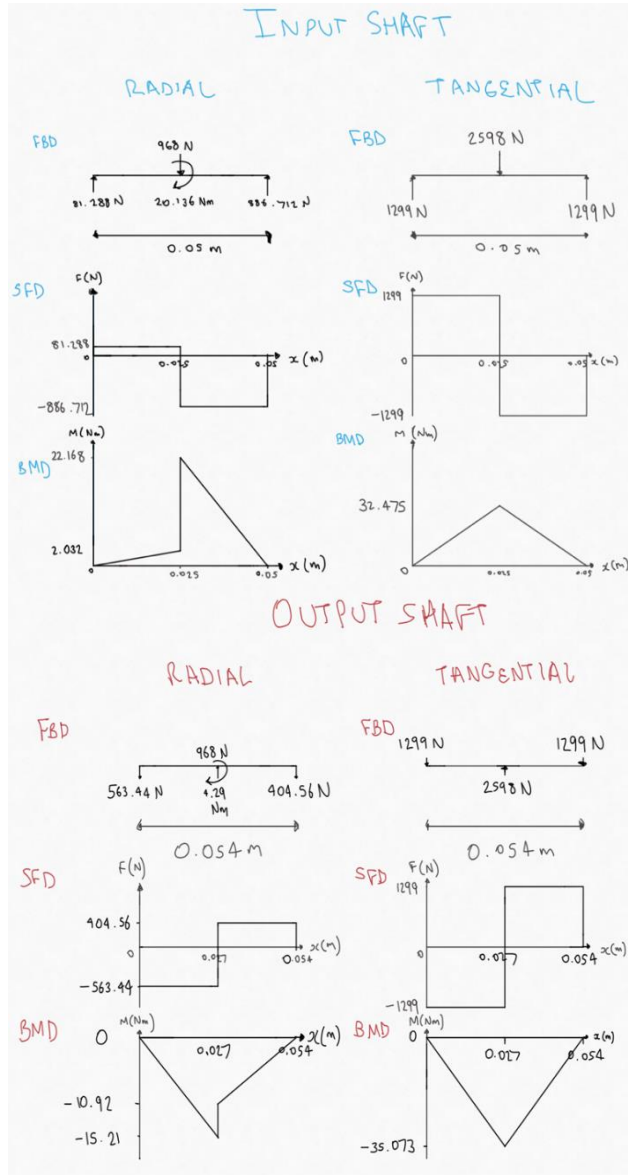 INPUT SHAFT
RADIAL
FBD
968 N
81.288 N
20.136 Nm
886.712 N
0.05 m
SFD
F(N)
81.288
0
0.025
0.05
x (m)
-886.712
BMD
M(Nm)
22.168
2.032
0
0.025
0.05
x(m)
TANGENTIAL
FBD
2598 N
1299 N
1299 N
0.05 m
SFD
F(N)
1299
0
0.025
0.05
x(m)
-1299
BMD
M (Nm)
32.475
0
0.025
0.05
x(m)
OUTPUT SHAFT
RADIAL
FBD
968 N
563.44 N
4.29
Nm
404.56 N
0.054 m
SFD
F(N)
404.56
0
0.027
0.054
x(m)
-563.44
BMD
M(Nm)
0
0.027
0.054
x(m)
-10.92
-15.21
TANGENTIAL
FBD
1299 N
1299 N
2598 N
0.054 m
SFD
F(N)
1299
0
0.027
0.054
x(m)
-1299
BMD
M(Nm)
0
0.027
0.054
x(m)
-35.073